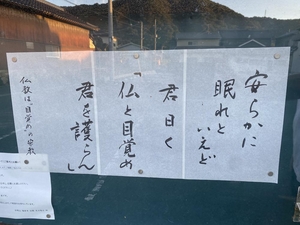 安らかに
眠れと
いえど
君曰く
「仏と目覚め
君を護らん」
仏教は目覚めの宗教